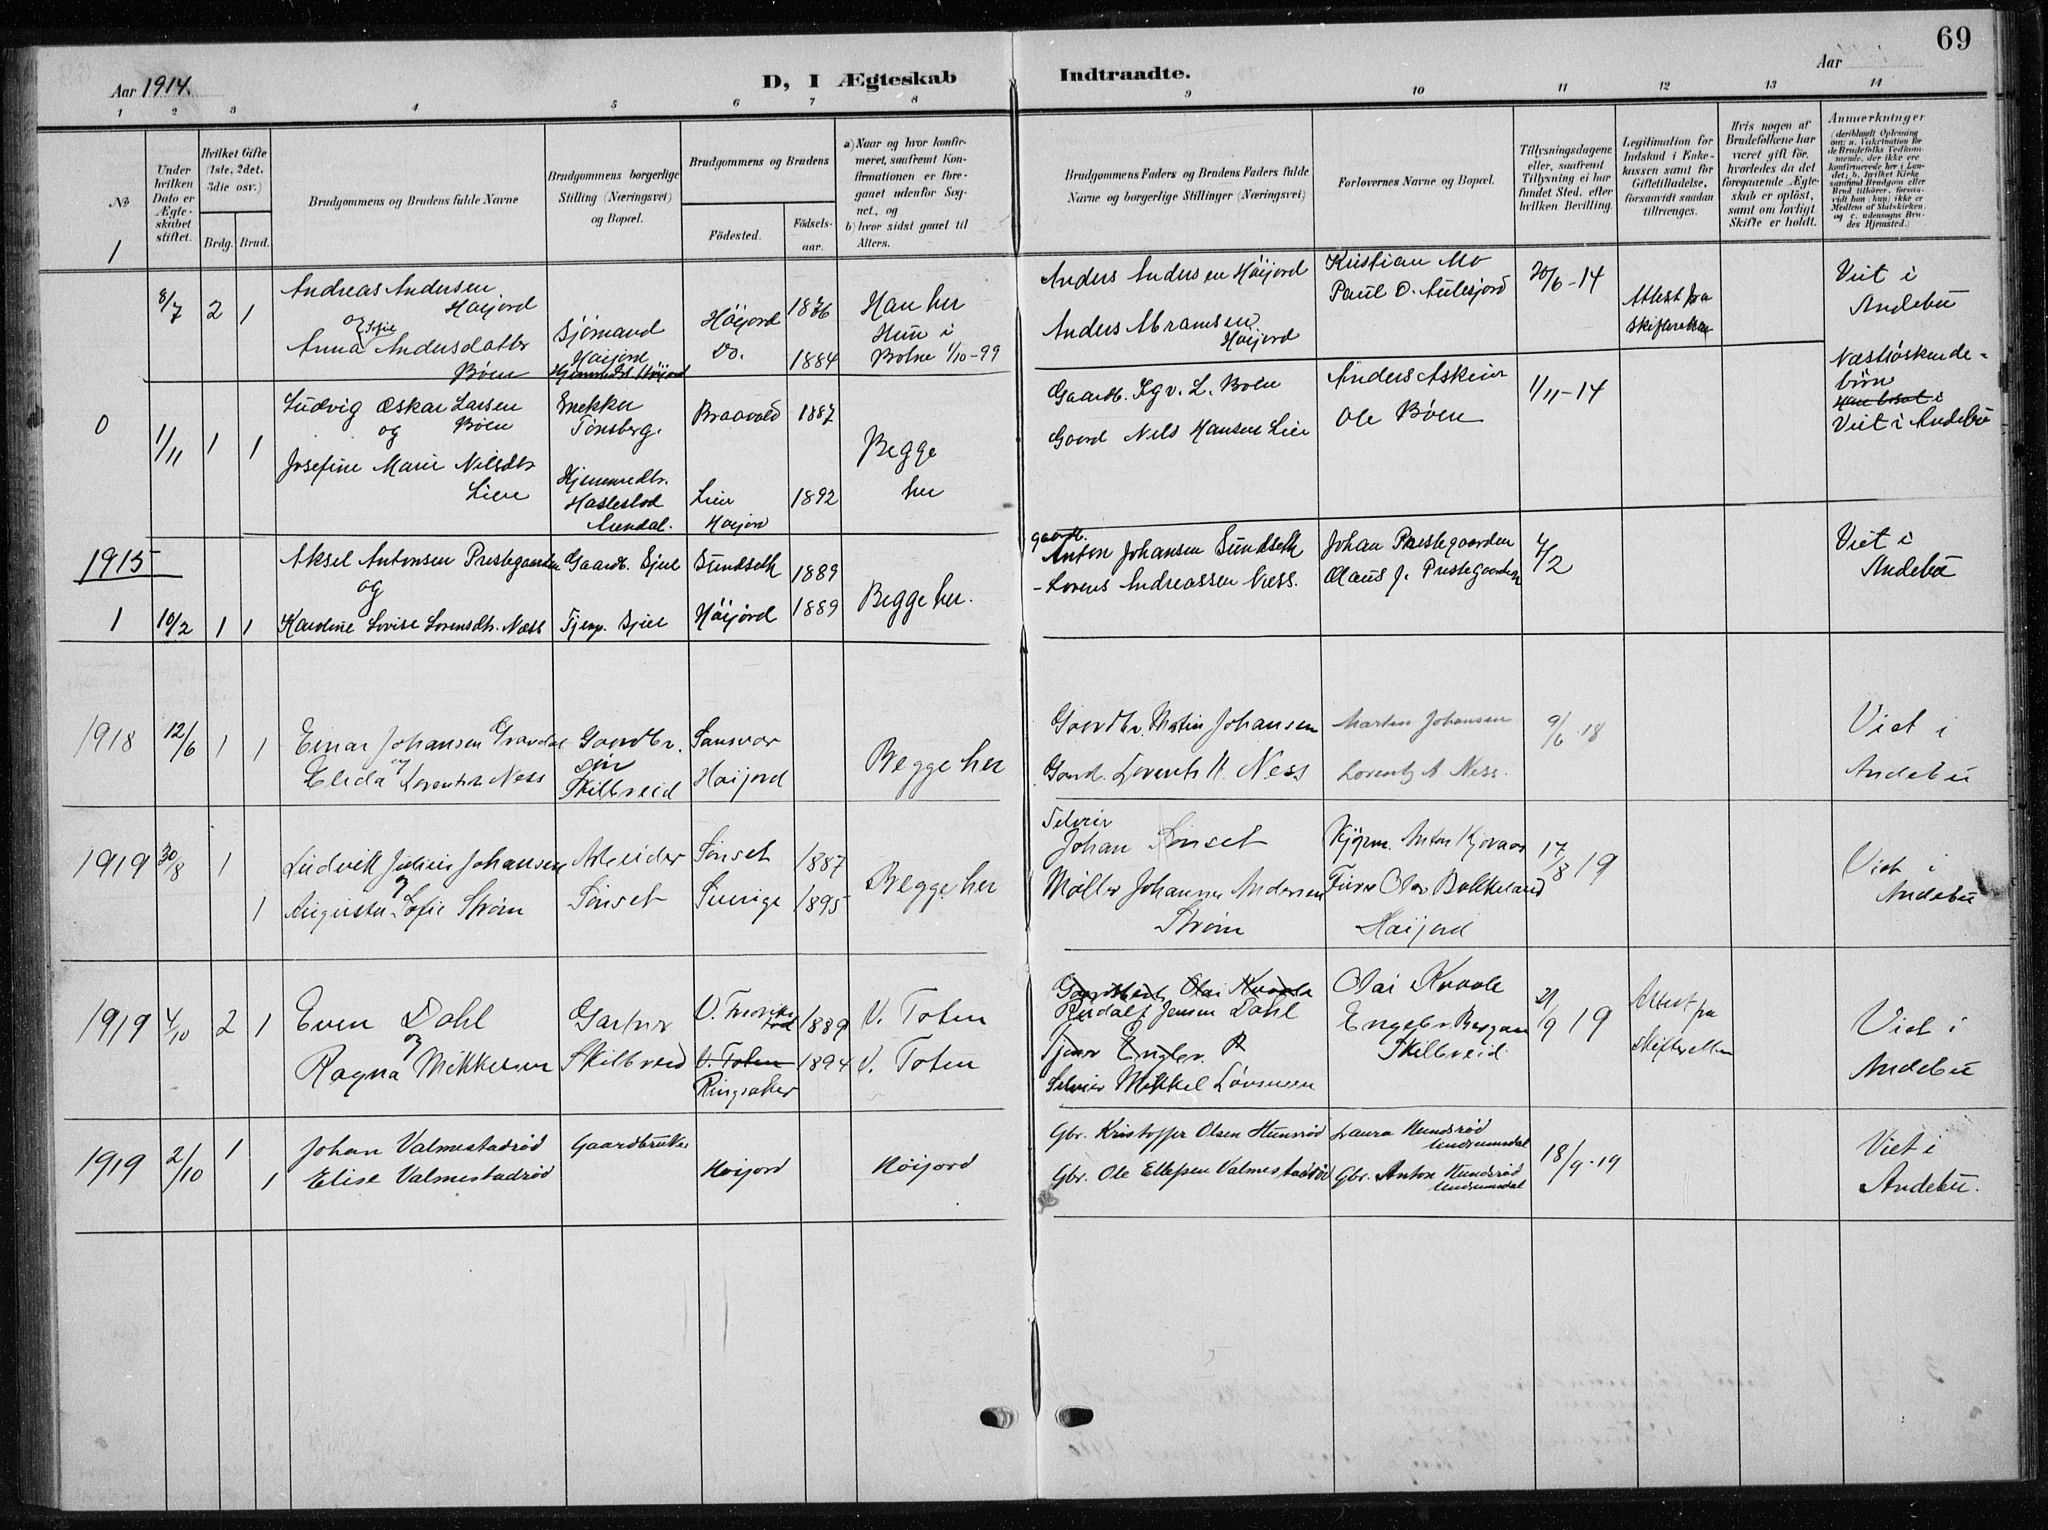 69
Aar 1914.
D, I Ægteskab Indtraadte.
Aar
1 2 3 4 5 6 7 8 9 10 11 12 13 14
No
Under hvilken Dato er Ægteskabet stiftet.
Hvilket Gifte (1ste, 2det, 3die osv.)
Brdg. Brud.
Brudgommens og Brudens fulde Navne
Brudgommens borgerlige Stilling (Næringsvei) og Bopæl.
Brudgommens og Brudens
Fødested.
Fødselsaar.
a) Naar og hvor konfirmeret, saafremt Konfirmationen er foregaaet udenfor Sognet, og
b) hvor sidst gaaet til Alters.
Brudgommens Faders og Brudens Faders fulde Navne og borgerlige Stillinger (Næringsvei)
Forlovernes Navne og Bopæl.
Tillysningsdagene eller, saafremt Tillysning ei har fundet Sted, efter hvilken Bevilling.
Legitimation for Indskud i Enkekassen samt for Giftetilladelse, forsaavidt saadan tiltrænges.
Hvis nogen af Brudefolkene har været gift før, hvorledes da det foregaaende Ægteskab er opløst, samt om lovligt Skifte er holdt.
Anmerkninger
1
8/7 2 1
Andreas Andersen
Høijord
og
Sofie
Anna Andersdatter
Bøen
Sjømand
Høijord
Høijord 1876
Do. 1884
Han her
Hun i
Botne 1/10-99
Anders Andersen Høijord
Anders Abramsen
Høijord
Kristian Mo
Paul O. Aulesjord
20/6-14
Attest fra
skifteretten
Viet i
Andebu
0
1/11 1 1
Ludvig Oskar Larsen
og Bøen
Josefine Marie Nilsdtr
Lien
Snekker
Tønsberg.
Hjemmedtr.
Braavold 1887
Lien
Høijord 1892
Begge
her
Gaardb. L. Bøen
Nils Hansen Lien
Anders Askeim
Ole Bøen
1/11-14
Næstsøskendebørn
Viet i Andebu
1915
1 10/2 1 1
Aksel Antonsen Prestegaarden
og
Karoline Lovise Lorensdtr. Næss
Gaardb. Gjeie
Tjenp. Gjeie
Sundseth 1889
Høijord 1889
Begge her.
gaardb.
Anton Johansen Sundseth
- Lorens Andreassen Næss.
Johan Prestegaarden
Olaus J. Prestegaarden
7/2
Viet i
Andebu
1918 12/6 1 1
Einar Johansen Gravdal
og
Elida Lorentsdtr Ness
Gaardbr.
Skilbreid
Sansvær
Høijord
Begge her
Gaardbr. Martin Johansen
Gaard. Lorents A. Ness
Martin Johansen
Lorents A Ness.
9/6-18
Viet i
Andebu
1919 30/8 1
1
Ludvik Julius Johansen
og
Augusta Sofie Strøm
Arbeider
Sønset
Sønset 1887
Sverige 1895
Begge her
Selveier
Johan Sønset
Møller Johannes Andersen
Strøm
Kjøpm. Anton Kjovaas
Olav Bakkeland
Høijord
17/8 19
Viet i
Andebu
1919 4/10 2 1
Even Dahl
og
Ragna Mikkelsen
Gartner
Skilbreid
1889
V. Toten 1894
Ringsaker
V. Toten
V. Toten
Gaardbr. Olai Kvaale
Rudolf Jensen Dahl
Selveier Mikkel Lövsneen
Olai Kvaale
Engebr. Bergan
Skilbreid.
21/9 19
Attest fra
skifteretten
Viet i
Andebu
1919 2/10 1
1
Johan Valmestadrød
Elise Valmestadrød
Gaardbruker
Høijord
Høijord
Gbr. Kristoffer Olsen Hunsrød
Gbr. Ole Ellefsen Valmestadrød
Laura Hundsrød
Undrumsdal
Gbr. Anton Hundsrød
Undrumsdal
18/9-19
Viet i
Andebu.